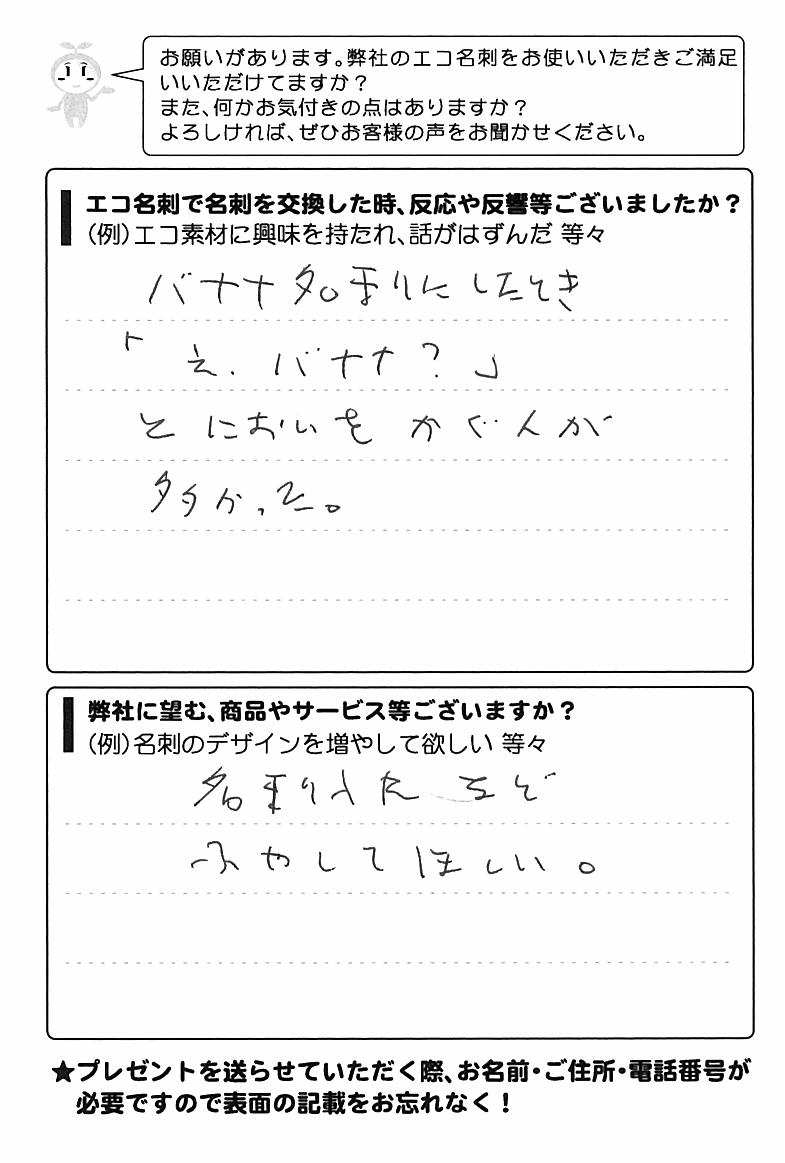 お願いがあります。弊社のエコ名刺をお使いいただきご満足
いいただけてますか?
また、何かお気付きの点はありますか?
よろしければ、ぜひお客様の声をお聞かせください。
エコ名刺で名刺を交換した時、反応や反響等ございましたか?
(例)エコ素材に興味を持たれ、話がはずんだ 等々
バナナ名刺にしたとき
「え、バナナ?」
とにおいをかぐ人が
多かった。
弊社に望む、商品やサービス等ございますか?
(例)名刺のデザインを増やして欲しい 等々
名刺入れなど
ふやしてほしい。
★プレゼントを送らせていただく際、お名前・ご住所・電話番号が
必要ですので表面の記載をお忘れなく!